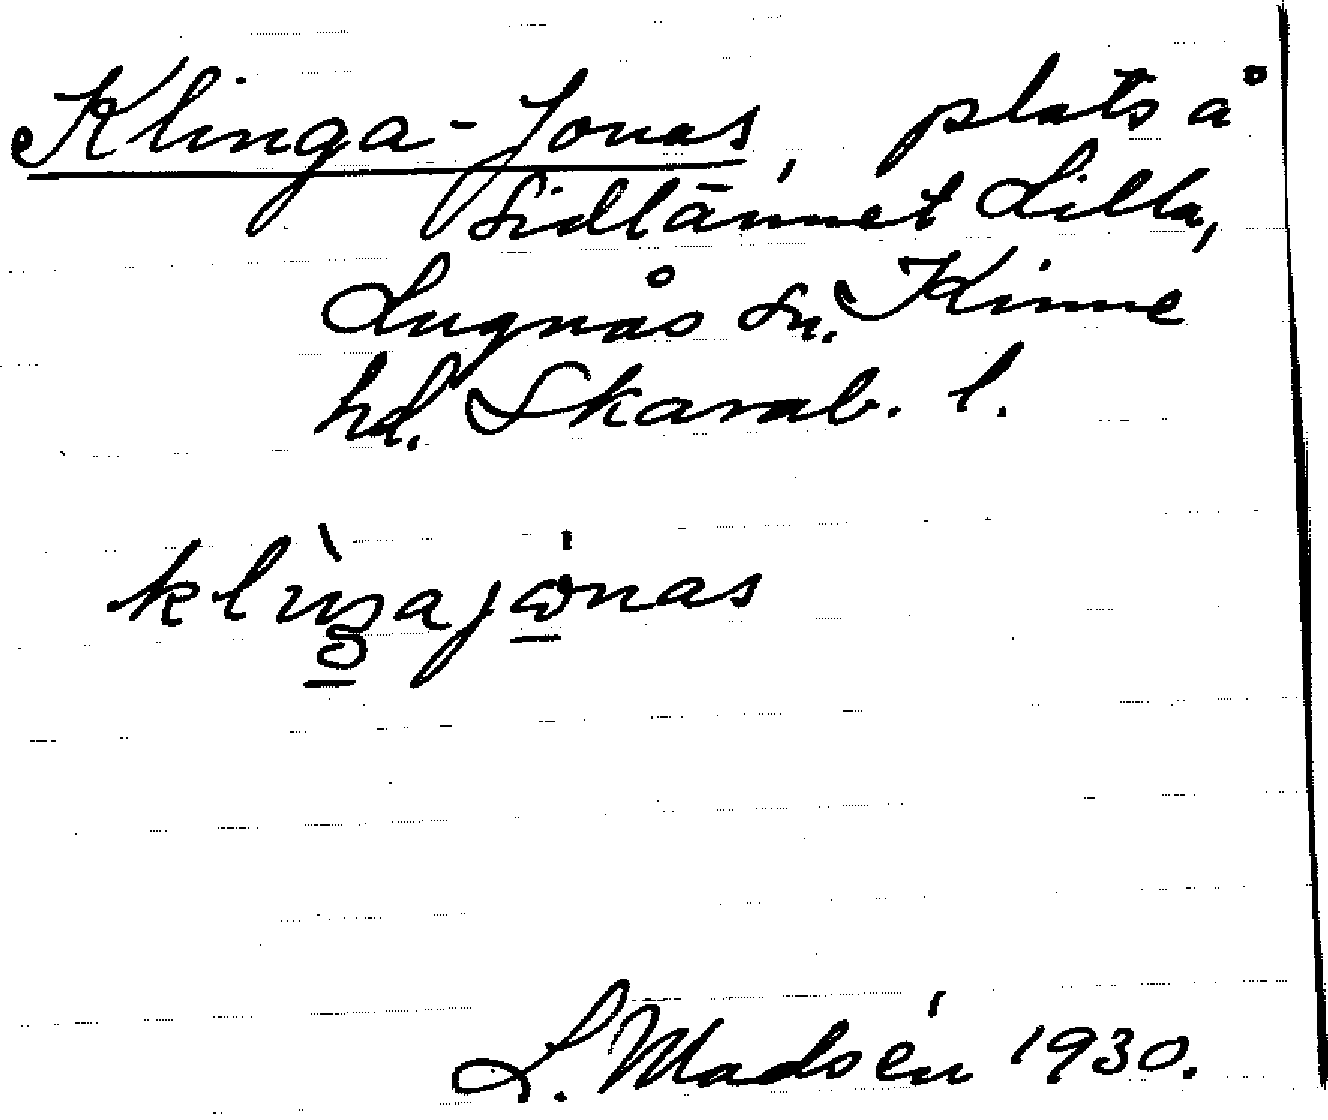 Klinga-Jonas, plats å
Sidlännet Lilla,
Lugnås sn. Kinne
hd. Skarab. l.
L. Madsén 1930.